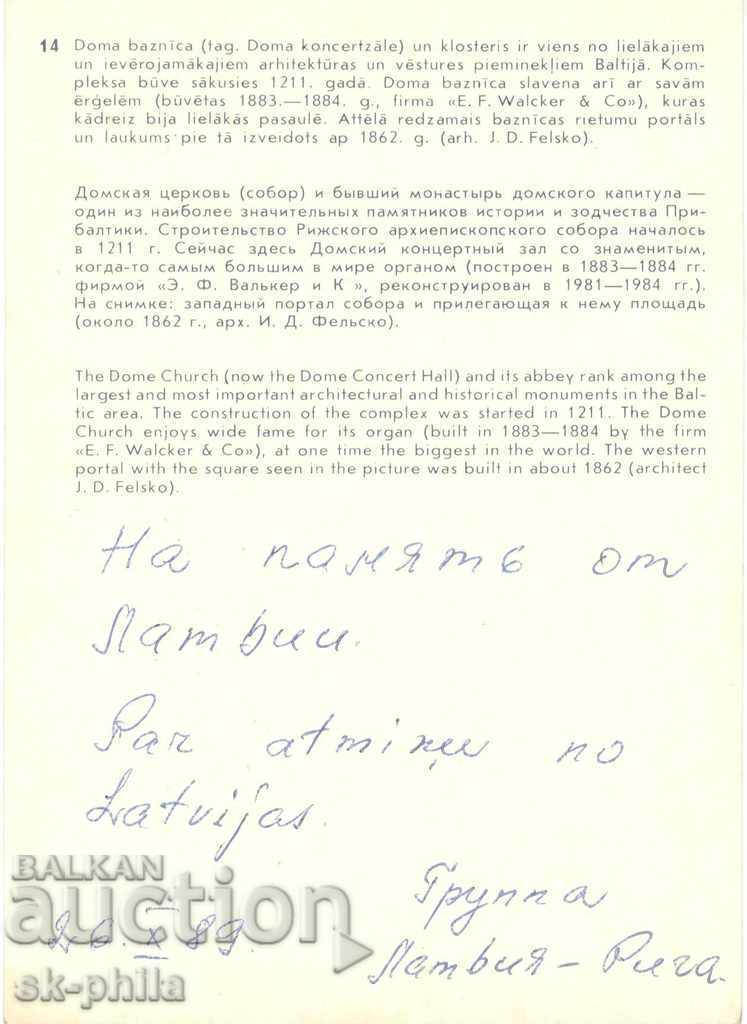 14 Doma baznīca (tag. Doma koncertzāle) un klosteris ir viens no lielākajiem
un ievērojamākajiem arhitektūras un vēstures pieminekļiem Baltijā. Kom-
pleksa būve sākusies 1211. gadā. Doma baznīca slavena arī ar savām
ērģelēm (būvētas 1883.—1884. g., firma «E. F. Walcker & Co»), kuras
kādreiz bija lielākās pasaulē. Attēlā redzamais baznīcas rietumu portāls
un laukums pie tā izveidots ap 1862. g. (arh. J. D. Felsko).
Домская церковь (собор) и бывший монастырь домского капитула —
один из наиболее значительных памятников истории и зодчества При-
балтики. Строительство Рижского архиепископского собора началось
в 1211 г. Сейчас здесь Домский концертный зал со знаменитым,
когда-то самым большим в мире органом (построен в 1883—1884 гг.
фирмой «Э. Ф. Валькер и К », реконструирован в 1981—1984 гг.).
На снимке: западный портал собора и прилегающая к нему площадь
(около 1862 г., арх. И. Д. Фельско).
The Dome Church (now the Dome Concert Hall) and its abbey rank among the
largest and most important architectural and historical monuments in the Bal-
tic area. The construction of the complex was started in 1211. The Dome
Church enjoys wide fame for its organ (built in 1883—1884 by the firm
«E. F. Walcker & Co»), at one time the biggest in the world. The western
portal with the square seen in the picture was built in about 1862 (architect
J. D. Felsko).
На память от
Латвии.
Par atmiņu no
Latvijas.
Группа
26.X.89.
Латвия – Рига.
BALKAN
auction
sk-phila